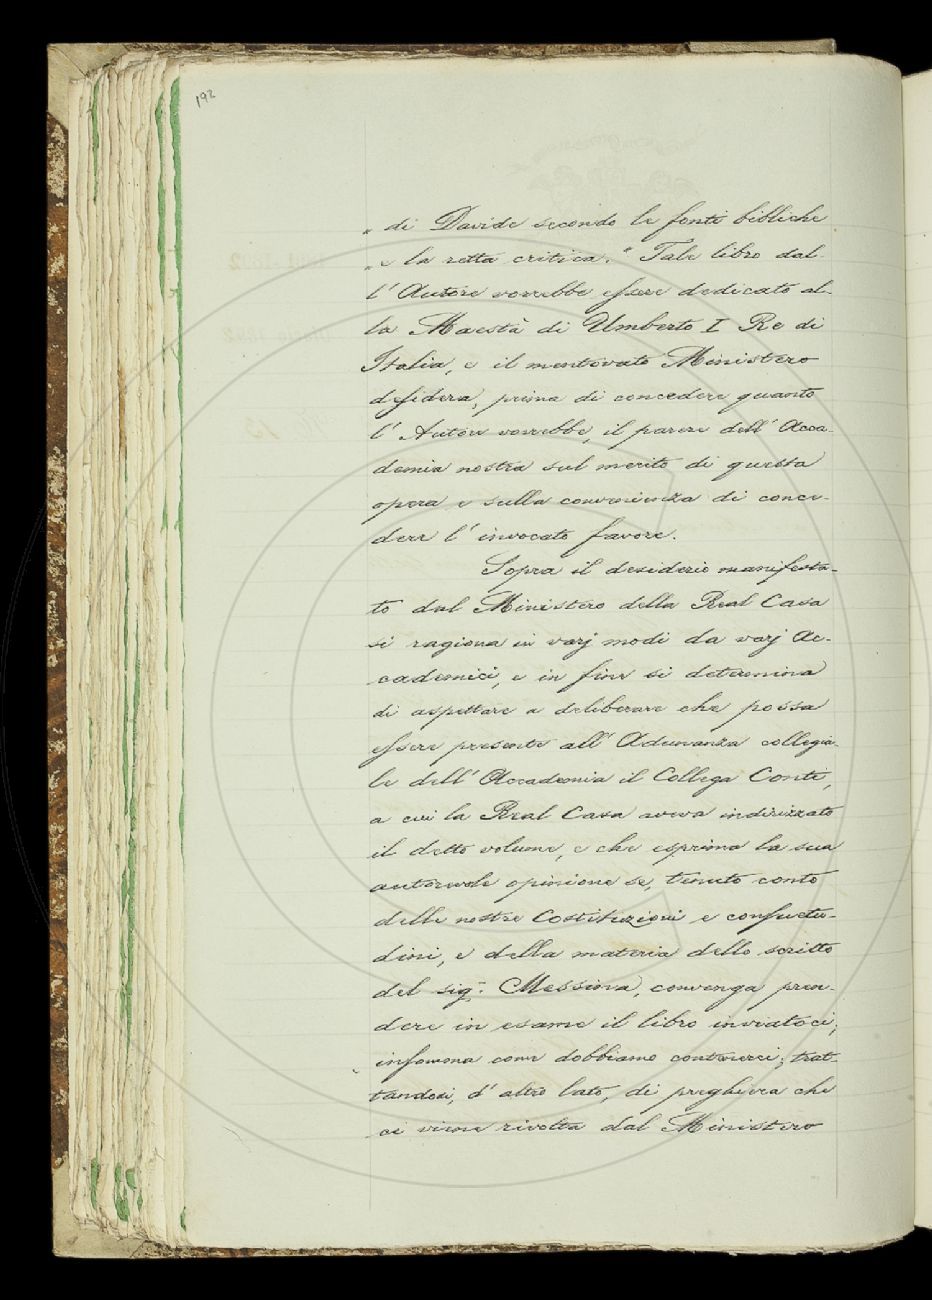 192
„ di Davide secondo le fonti bibliche
„ e la retta critica." Tale libro dal-
l'Autore vorrebbe essere dedicato al-
la Maestà di Umberto I Re di
Italia, e il mentovato Ministero
desidera, prima di concedere quanto
l'Autore vorrebbe, il parere dell'Acca-
demia nostra sul merito di questa
opera e sulla convenienza di conce-
dere l'invocato favore.
Sopra il desiderio manifesta-
to dal Ministero della Real Casa
si ragiona in varj modi da varj Ac-
cademici, e in fine si determina
di aspettare a deliberare che possa
essere presente all'Adunanza collegia-
le dell'Accademia il Collega Conti,
a cui la Real Casa aveva indirizzato
il detto volume, e che esprima la sua
autorevole opinione se, tenuto conto
delle nostre Costituzioni e consuetu-
dini, e della materia dello scritto
del sig.r Messina, convenga pren-
dere in esame il libro inviatoci,
insomma come dobbiamo contenerci; trat-
tandosi, d'altro lato, di preghiera che
ci viene rivolta dal Ministero